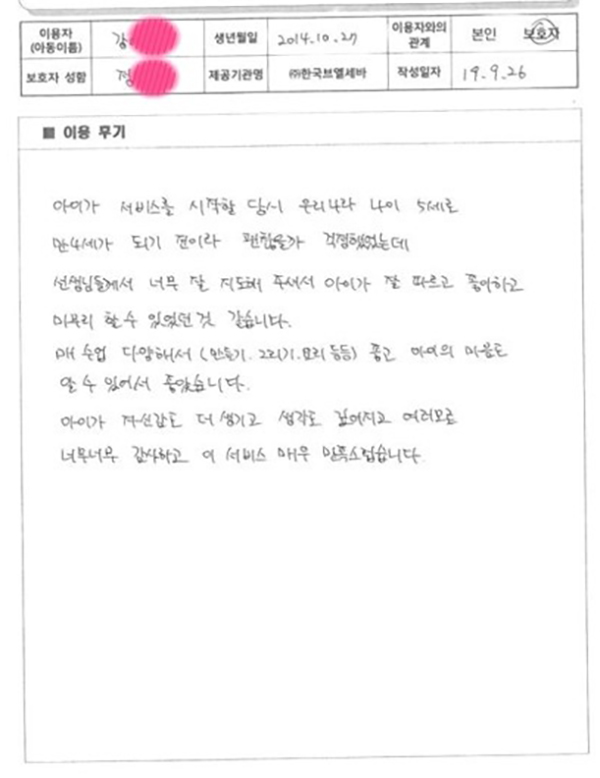 이용자 (아동이름) 강 생년월일 2014.10.27 이용자와의 관계 본인 보호자
보호자 성함 정 제공기관명 ㈜한국브엘세바 작성일자 19.9.26
■ 이용 후기
아이가 서비스를 시작할 당시 우리나라 나이 5세로
만4세가 되기 전이라 괜찮을까 걱정했었는데
선생님들께서 너무 잘 지도해 주셔서 아이가 잘 따르고 좋아하고
마무리 할 수 있었던 것 같습니다.
매 수업 다양해서 (만들기. 그리기. 요리 등등) 좋고 아이의 마음도
알 수 있어서 좋았습니다.
아이가 자신감도 더 생기고 생각도 깊어지고 여러모로
너무너무 감사하고 이 서비스 매우 만족스럽습니다.